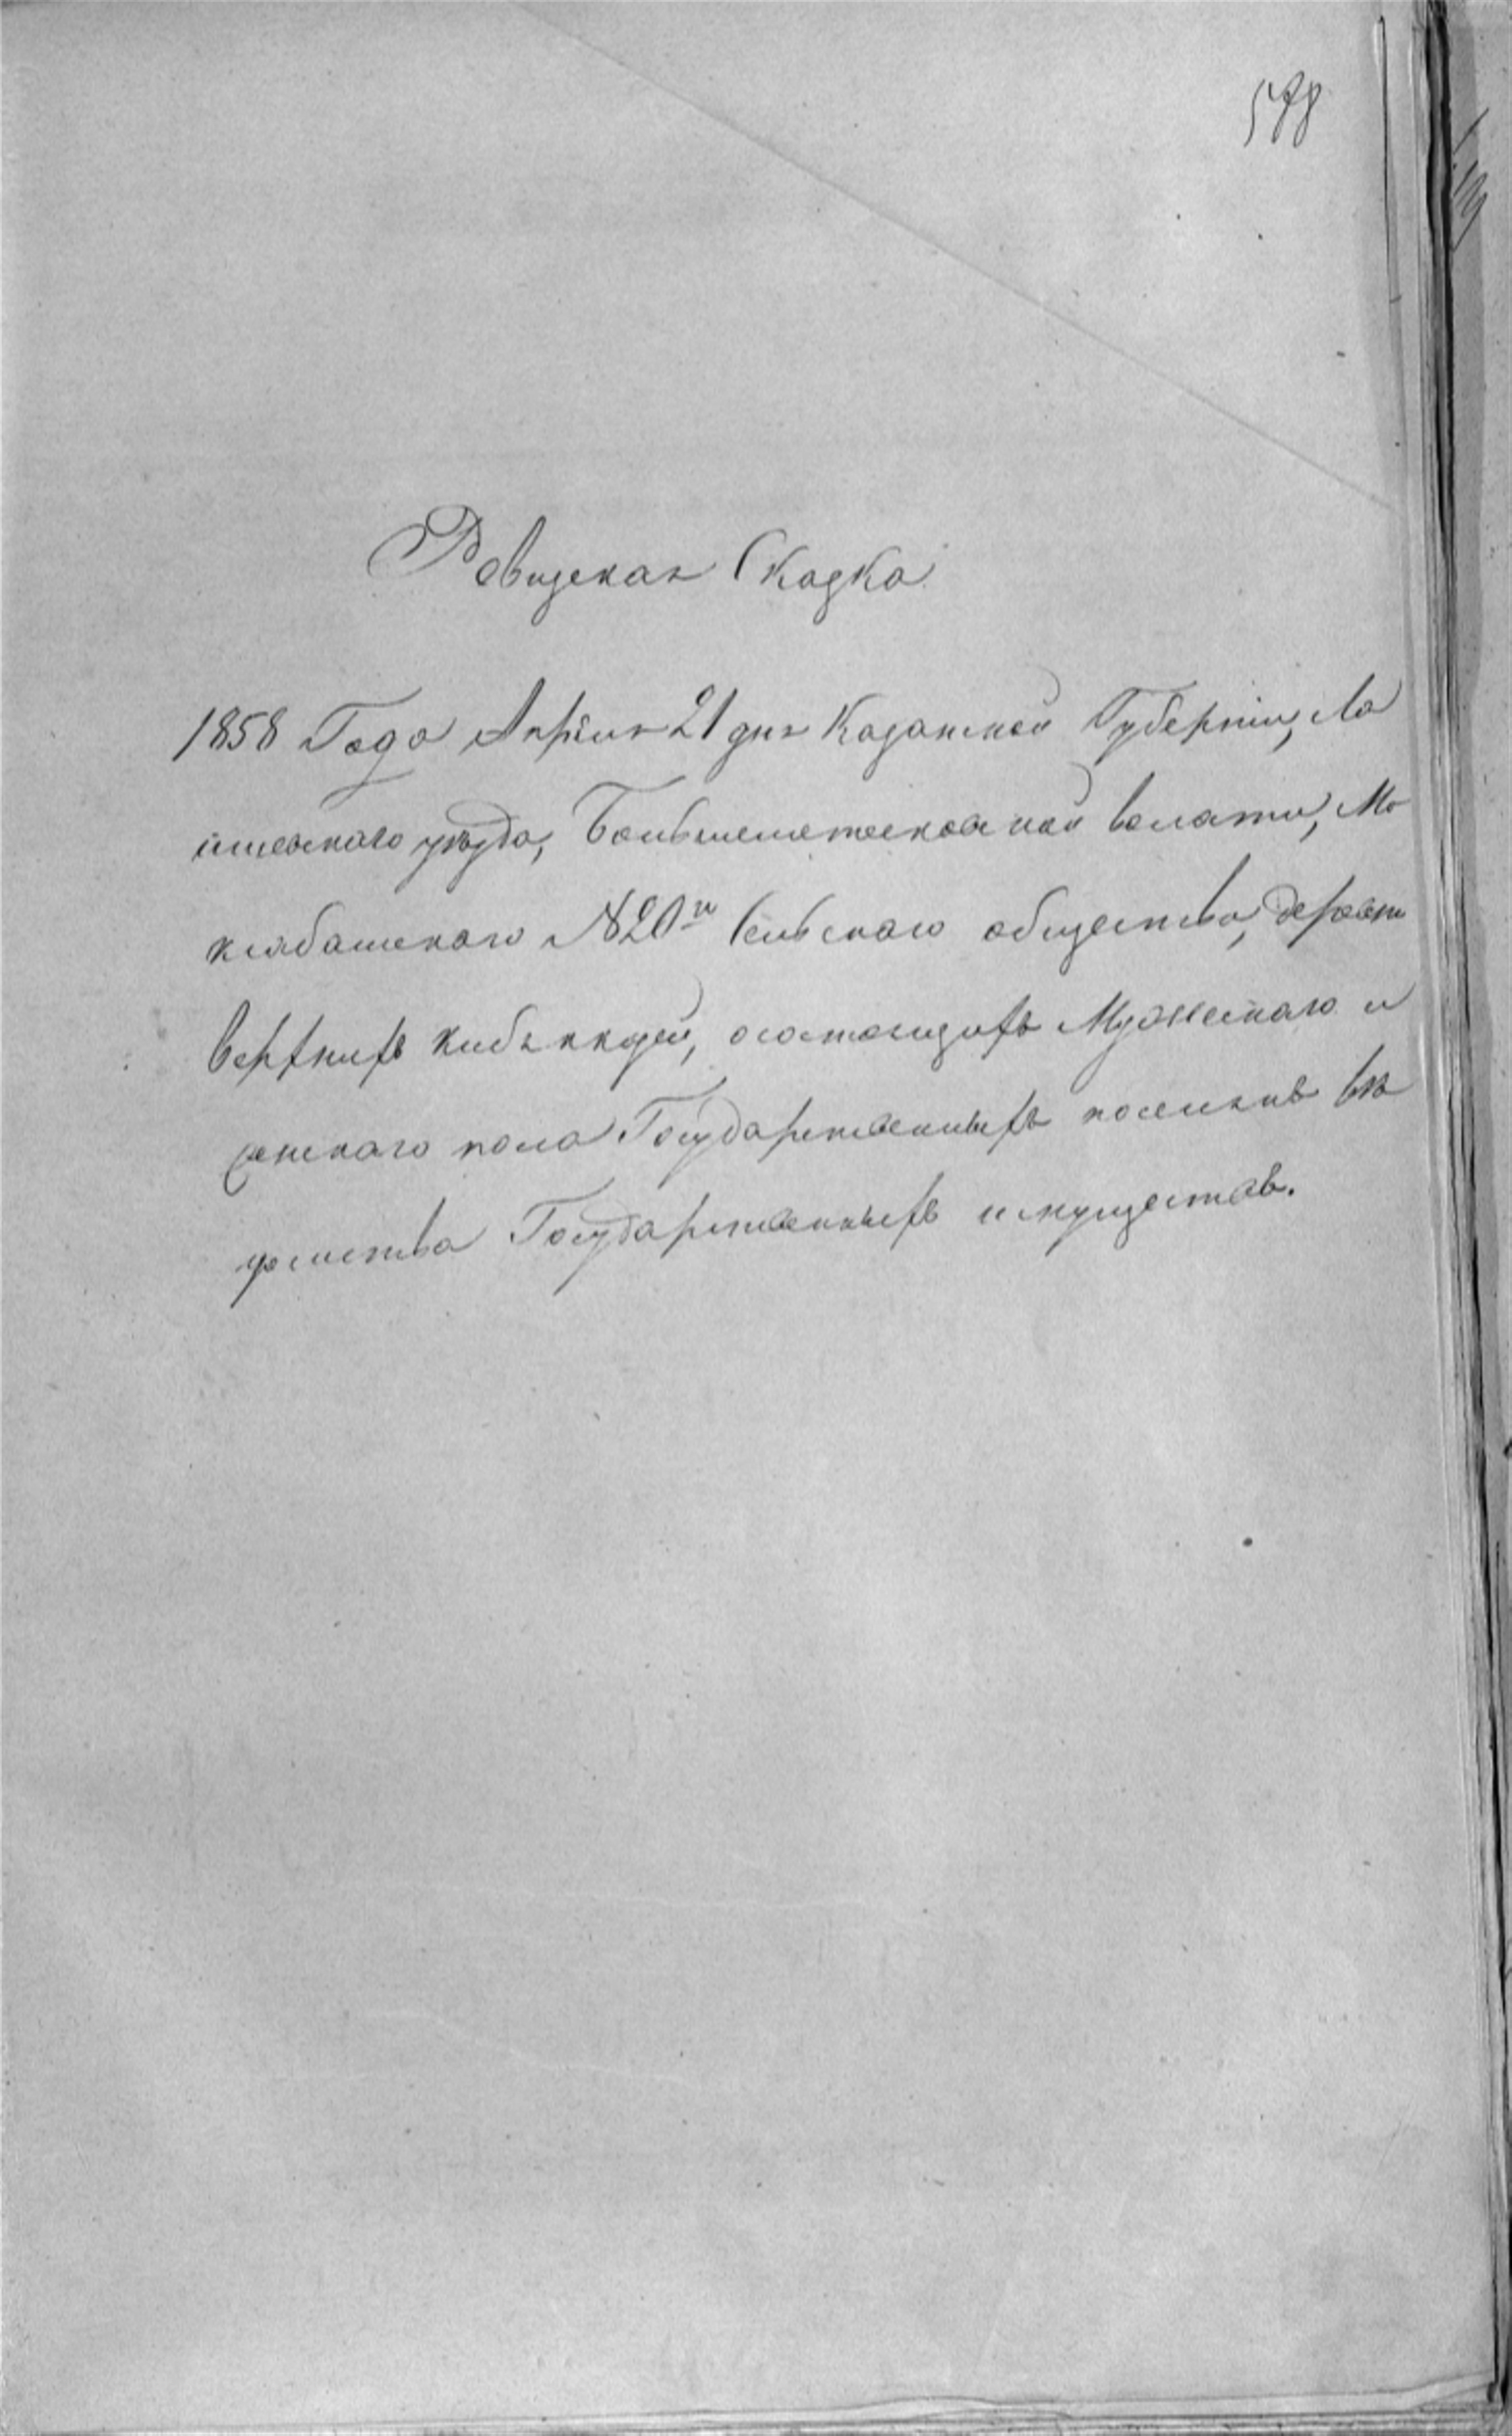 578
Ревизская Сказка
1858 Года Апрѣля 21 дня Казанской Губерніи, Ла
ишевскаго уѣзда, Большеметесковской волости, Мо
клябашскаго №20го Сельскаго общества, деревни
Верхнихъ Кибякъкозей, осостоящихъ Мужескаго и
женскаго пола Государственныхъ поселянъ вѣ
домства Государственныхъ имуществъ.